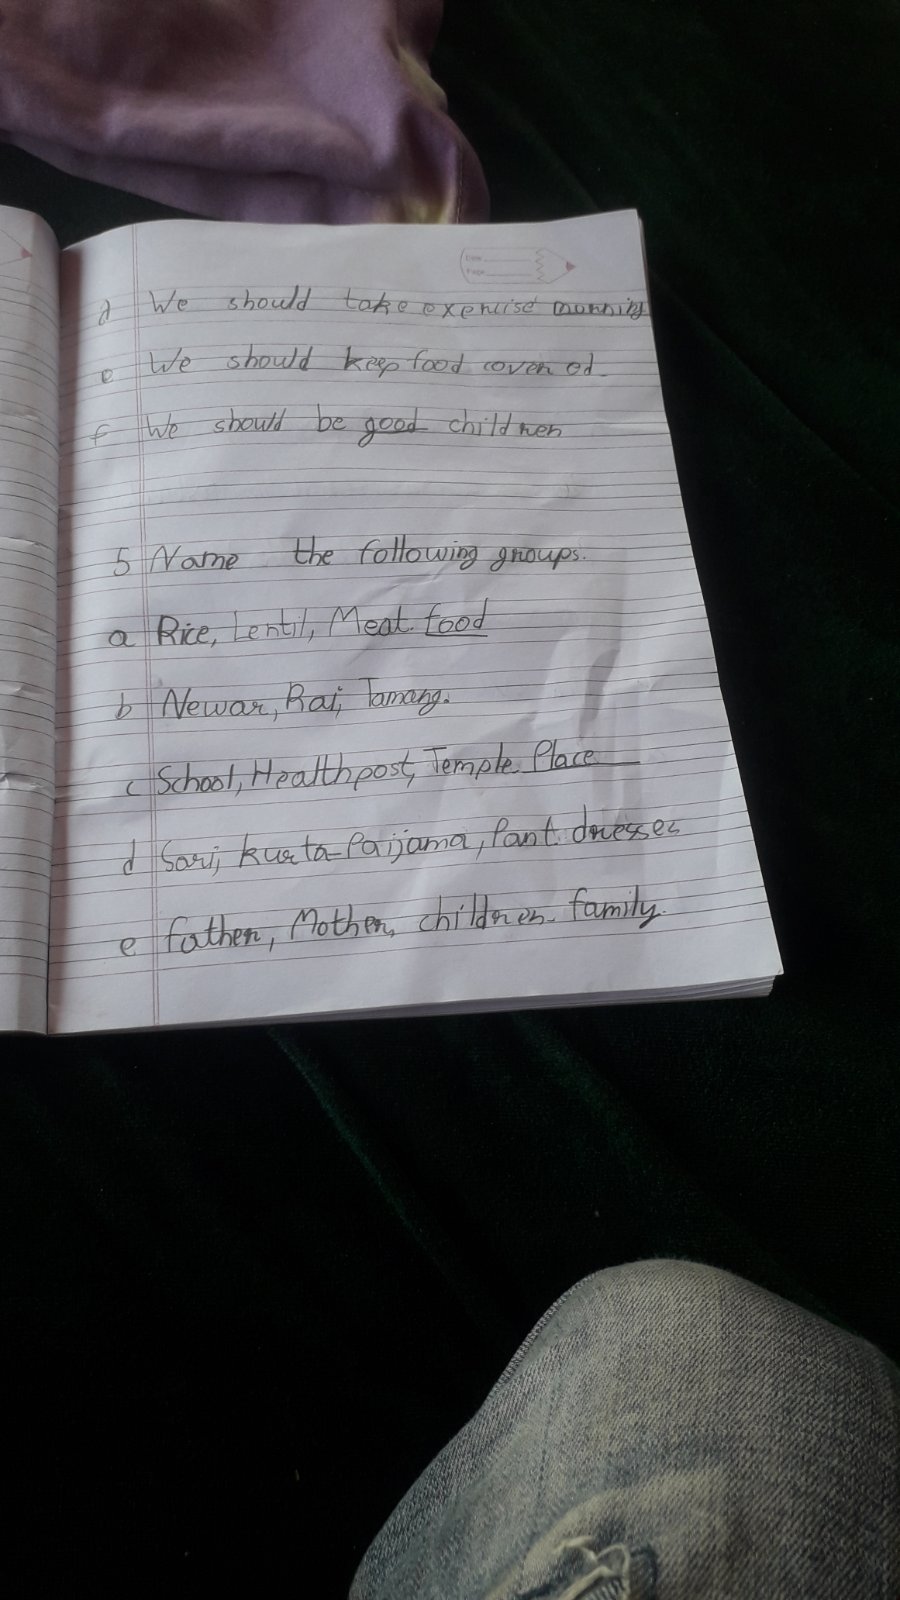 Date
Page
d We should take exercise morning
e We should keep food covered
f We should be good children
5 Name the following groups.
a Rice, Lentil, Meat. food
b Newar, Rai, Tamang.
c School, Healthpost, Temple. Place
d Sari, kurta-Paijama, Pant. dresses
e father, Mother, children. family.